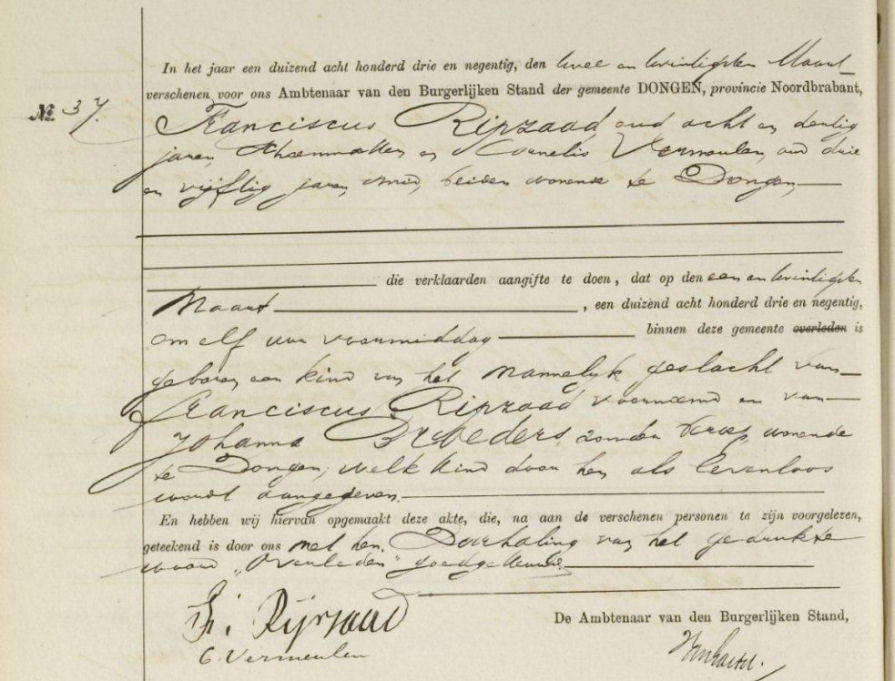 In het jaar een duizend acht honderd drie en negentig, den twee en twintigsten Maart
verschenen voor ons Ambtenaar van den Burgerlijken Stand der gemeente DONGEN, provincie Noordbrabant,
No 37.
Franciscus Ripzaad oud acht en dertig
jaren, schoenmaker en Cornelis Vermeulen, oud drie
en vijftig jaren, smid, beiden wonende te Dongen,
die verklaarden aangifte te doen, dat op den een en twintigsten
Maart, een duizend acht honderd drie en negentig,
om elf uur voormiddag binnen deze gemeente overleden is
geboren een kind van het mannelijk geslacht van
Franciscus Ripzaad voornoemd en van
Johanna Broeders, zonder beroep, wonende
te Dongen, welk kind door hen als levenloos
wordt aangegeven.
En hebben wij hiervan opgemaakt deze akte, die, na aan de verschenen personen te zijn voorgelezen,
geteekend is door ons met hen. Doorhaling van het gedrukte
woord "overleden" goedgekeurd.
De Ambtenaar van den Burgerlijken Stand,
C. Vermeulen